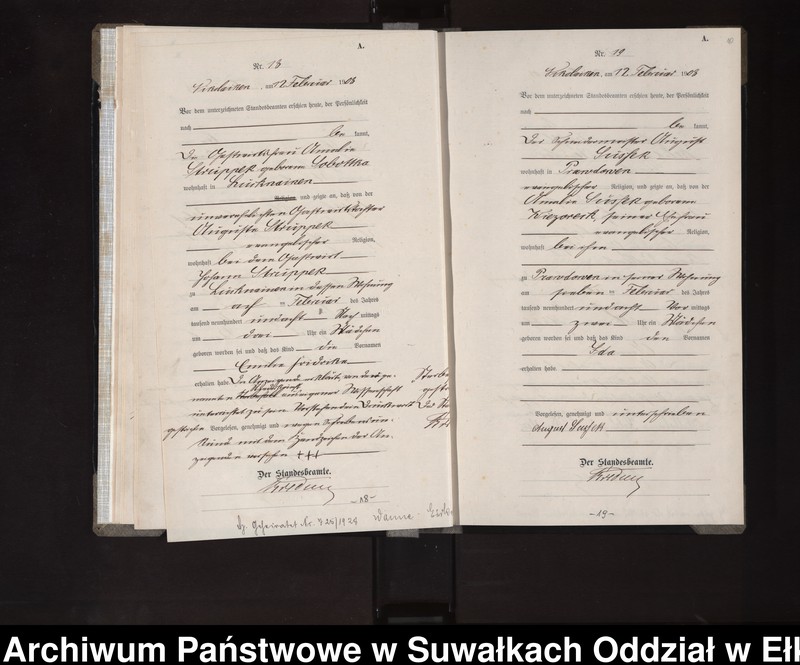 A.
Nr. 18
Nikolaiken, am 12 Februar 1908
Vor dem unterzeichneten Standesbeamten erschien heute, der Persönlichkeit
nach
be kannt,
Die Gastwirtsfrau Amalie
Struppek geborene Sobottka
wohnhaft in Lucknainen
Religion, und zeigte an, daß von der
unverehelichten Gastwirtstochter
Auguste Struppek
evangelischer Religion,
wohnhaft bei dem Gastwirt
Johann Struppek
zu Lucknainen in dessen Wohnung
am acht Februar des Jahres
tausend neunhundert und acht Nach mittags
um drei Uhr ein Mädchen
geboren worden sei und daß das Kind die Vornamen
Emilie Friederike
erhalten habe. Die Anzeigende erklärte, von der ge-
nannten eigener Wissenschaft
unterrichtet zu sein. Vorstehenden Druckworte
gestrichen Vorgelesen, genehmigt und wegen Schreibens un-
kunde mit dem Handzeichen der An-
zeigenden versehen +++
Der Standesbeamte.
-18-
Geheiratet Nr. 325/1929 Wanne-
A.
Nr. 19
Nikolaiken, am 12 Februar 1908
Vor dem unterzeichneten Standesbeamten erschien heute, der Persönlichkeit
nach
be kannt,
Der Schneidermeister August
Sussek
wohnhaft in Prawdowen
evangelischer Religion, und zeigte an, daß von der
Amalie Sussek geborene
Wiezoreck, seiner Ehefrau
evangelischer Religion,
wohnhaft bei ihm
zu Prawdowen in seiner Wohnung
am sieben Februar des Jahres
tausend neunhundert und acht Vor mittags
um zwei Uhr ein Mädchen
geboren worden sei und daß das Kind den Vornamen
Ida
erhalten habe.
Vorgelesen, genehmigt und unterschrieben
August Sussek
Der Standesbeamte.
-19-
Archiwum Państwowe w Suwałkach Oddział w Eł